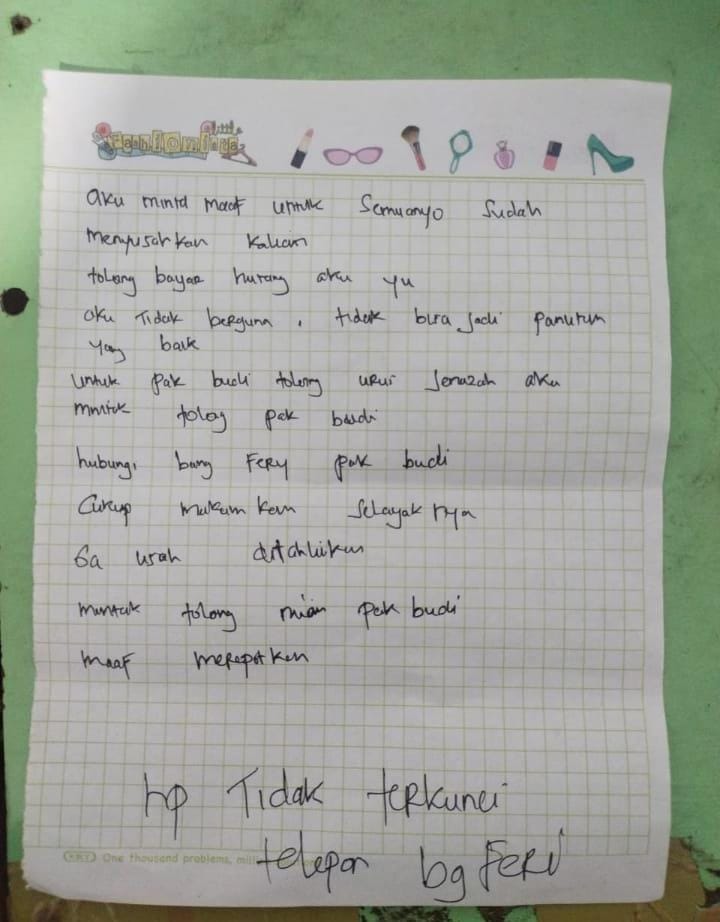 little
fashionista
aku minta maaf untuk Semuanyo Sudah
menyusahkan kalian
tolong bayar hutang aku yu
aku Tidak berguna, tidak bisa Jadi panutan
yang baik
untuk pak budi tolong urus Jenazah aku
mintak tolog pak budi
hubungi bang FERY pak budi
Cukup makam kan Selayak nya
Ga usah
mintak tolong pak budi
maaf merepotkan
hp Tidak terkunci
One thousand problems,
telepon bg FERI